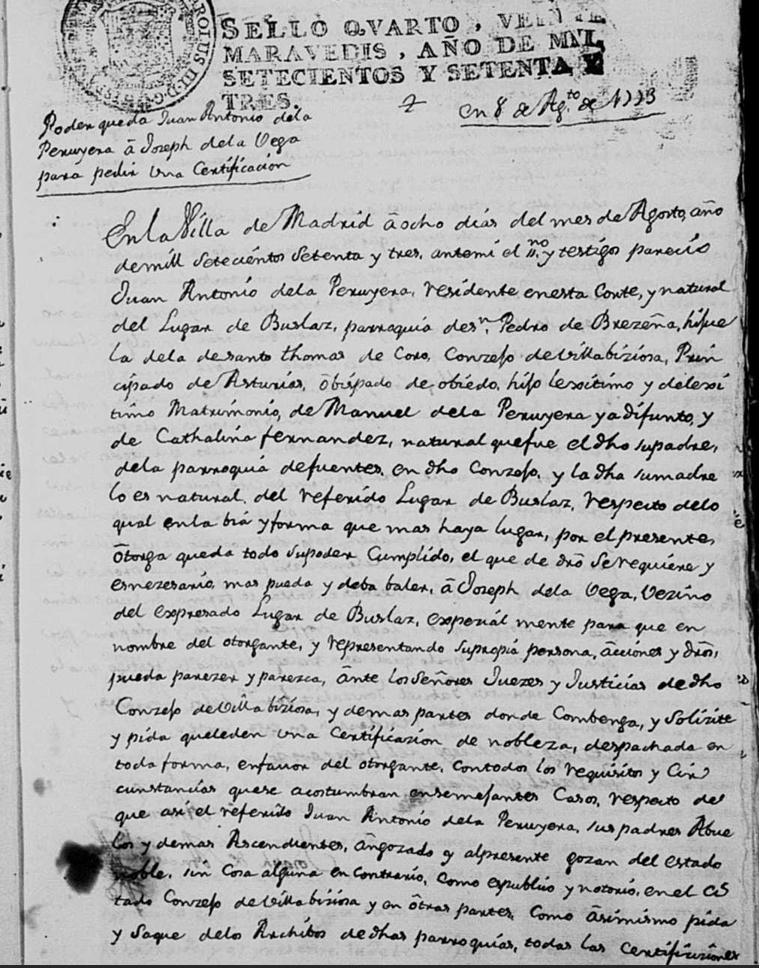 CAROLUS III D G
SELLO QVARTO, VEINTE
MARAVEDIS, AÑO DE MIL
SETECIENTOS Y SETENTA Y
TRES.
en 8 de Ag.to de 1773
Poder que da Juan Antonio dela
Peruyera â Joseph dela Vega
para pedir una Certificacion
En la Villa de Madrid â ocho dias del mes de Agosto, año
de mill setecientos setenta y tres, antemi el ss.no y testigos parecio
Juan Antonio dela Peruyera, residente enesta Corte, y natural
del Lugar de Buslaz, parroquia de sn. Pedro de Brezeña, hijue
la dela de santo thomas de Coro, Conzejo de Villabiziosa, Prin
cipado de Asturias, ôbispado de obiedo, hijo lexitimo y delexi
timo Matrimonio, de Manuel dela Peruyera ya difunto, y
de Cathalina fernandez, natural que fue el dho su padre,
dela parroquia de fuentes, en dho Conzejo, y la dha su madre
lo es natural, del referido Lugar de Buslaz, respecto delo
qual enla bia y forma que mas haya lugar, por el presente,
ôtorga que da todo supoder Cumplido, el que de dro se requiere y
es nezesario, mas pueda y deba baler, â Joseph dela Vega, Vezino
del expresado Lugar de Buslaz, expezial mente para que en
nombre del otorgante, y representando su propia persona, acciones y dros,
pueda parezer y parezca, ânte los Señores Juezes y Justicias de dho
Conzejo de Villabiziosa, y demas partes donde Combenga, y Solizite
y pida que le den una Certificazion de nobleza, despachada en
toda forma, en favor del otorgante, con todos los requisitos y Cir
cunstancias que se acostumbran en semejantes Casos, respecto de
que asi el referido Juan Antonio dela Peruyera, sus padres Abue
los y demas Ascendientes, ân gozado y al presente gozan del estado
noble, sin Cosa alguna en Contrario, Como es publico y notorio, en el Ci
tado Conzejo de Villabiziosa y en ôtras partes, Como âsimismo pida
y Saque delos Archibos de dhas parroquias, todas las Certificaziones